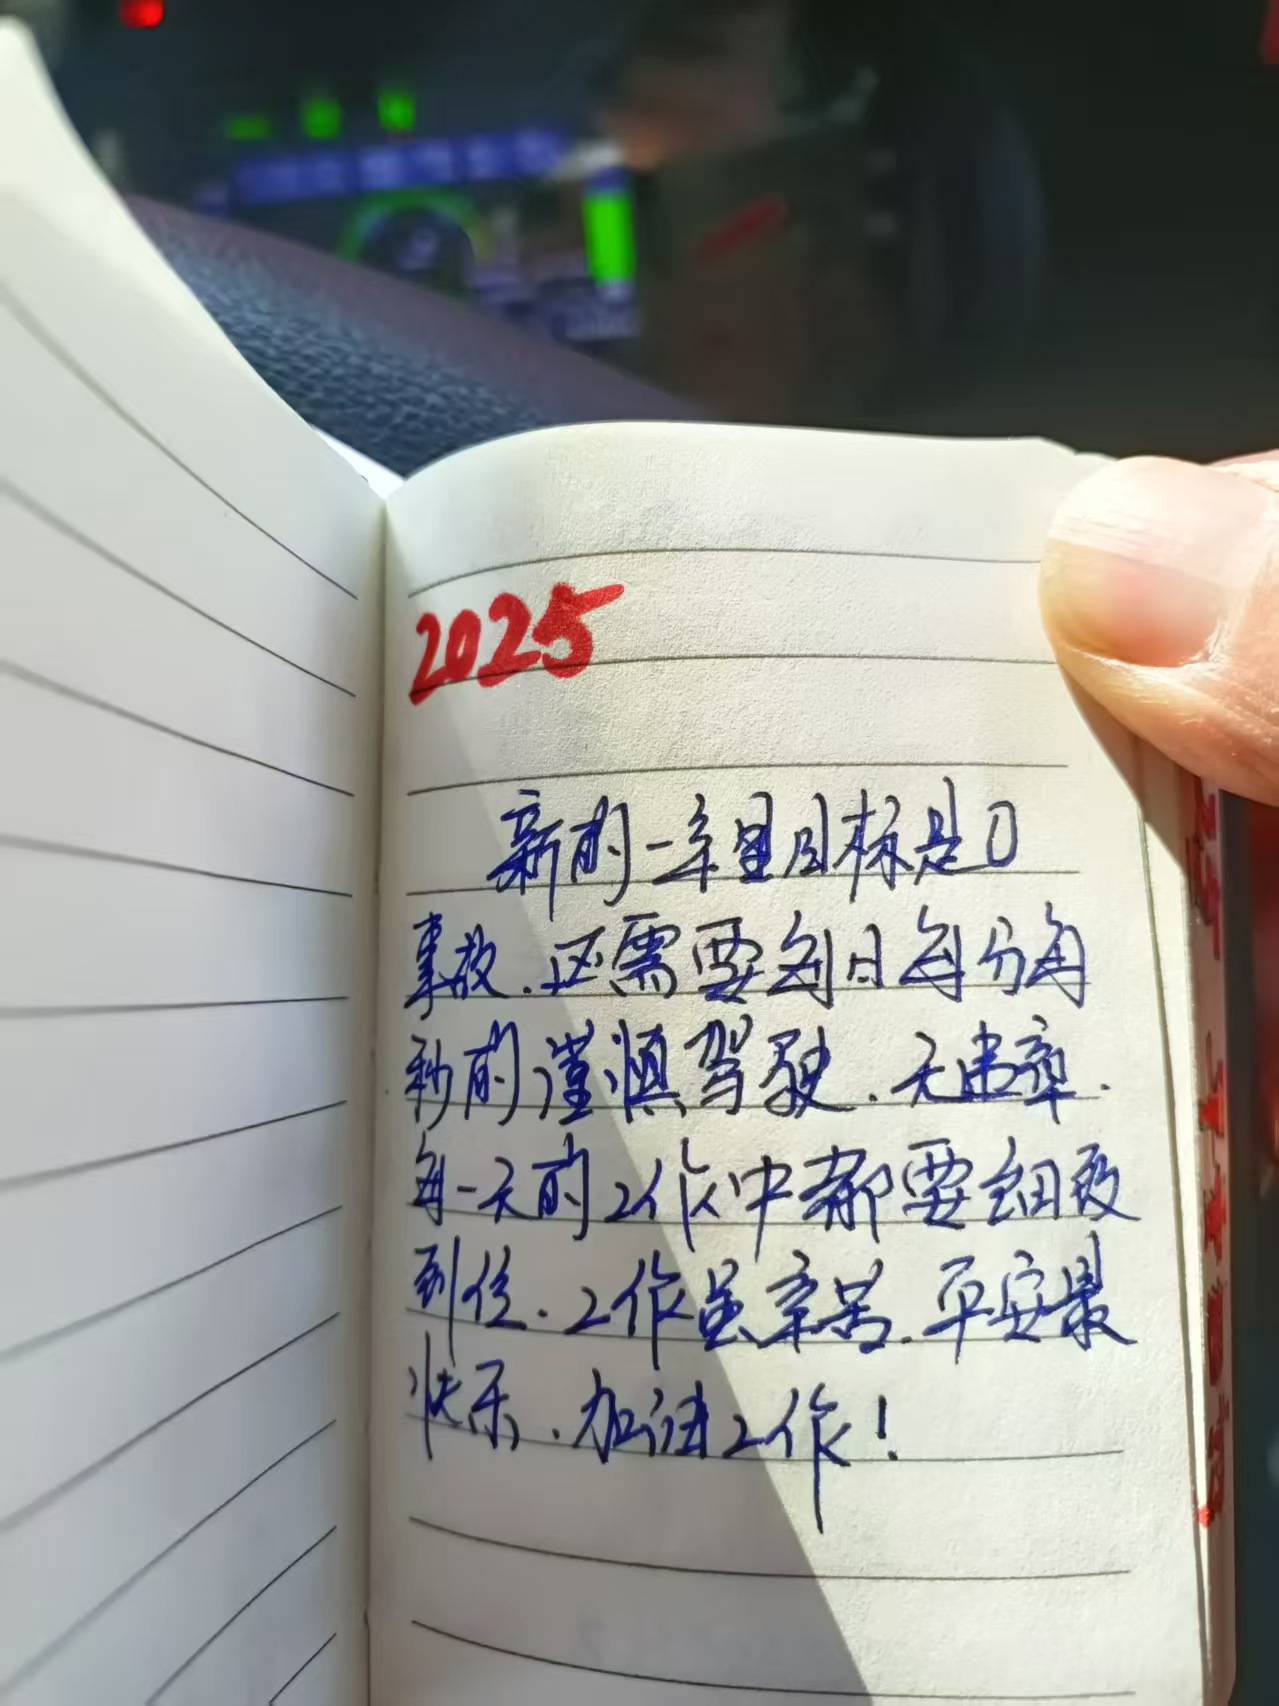 2025
新的一年里目标是0
事故.还需要每日每分每
秒的谨慎驾驶.无串章.
每一天的工作中都要细致
到位.工作虽辛苦.平安最
快乐.加油工作!